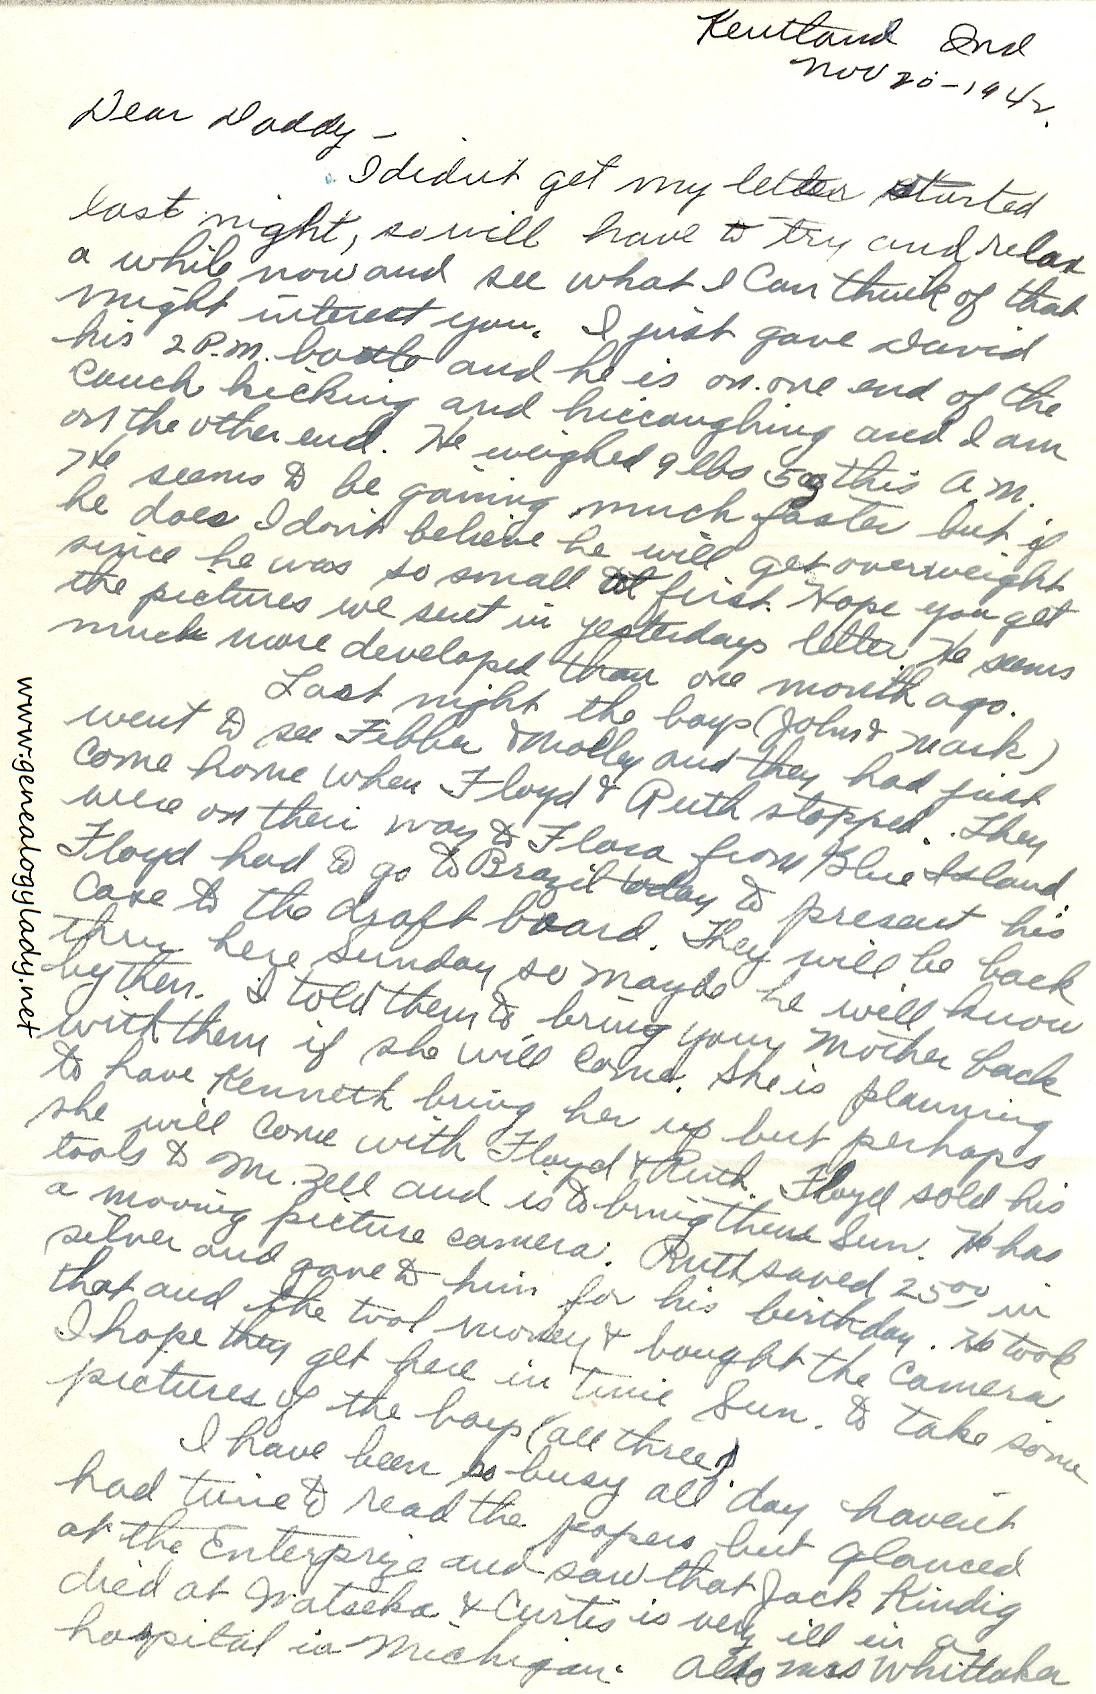 Kentland Ind
Nov 20-1942.
Dear Daddy -
I didn't get my letter started
last night, so will have to try and relax
a while now and see what I can think of that
might interest you. I just gave David
his 2 P.M. bottle and he is on one end of the
couch kicking and hiccoughing and I am
on the other end. He weighed 9 lbs 5 oz this A.M.
He seems to be gaining much faster but if
he does I don't believe he will get overweight
since he was so small at first. Hope you get
the pictures we sent in yesterdays letter. He seems
much more developed than one month ago.
Last night the boys (John & Mark)
went to see Fibber & Molley and they had just
come home when Floyd & Ruth stopped. They
were on their way to Flora from Blue Island
Floyd had to go to Brazil today to present his
case to the draft board. They will be back
thru here Sunday so maybe he will know
by then. I told them to bring your Mother back
with them if she will come. She is planning
to have Kenneth bring her up but perhaps
she will come with Floyd & Ruth. Floyd sold his
tools to Mr. Zell and is to bring them Sun. He has
a moving picture camera. Ruth saved 25 00 in
silver and gave to him for his birthday. He took
that and the tool money & bought the camera
I hope they get here in time Sun. to take some
pictures of the boys (all three)
I have been so busy all day haven't
had time to read the papers but glanced
at the Enterprize and saw that Jack Kindig
died at Watseka & Curtis is very ill in a
hospital in Michigan. Also Mrs Whittaker
www.genealogylady.net